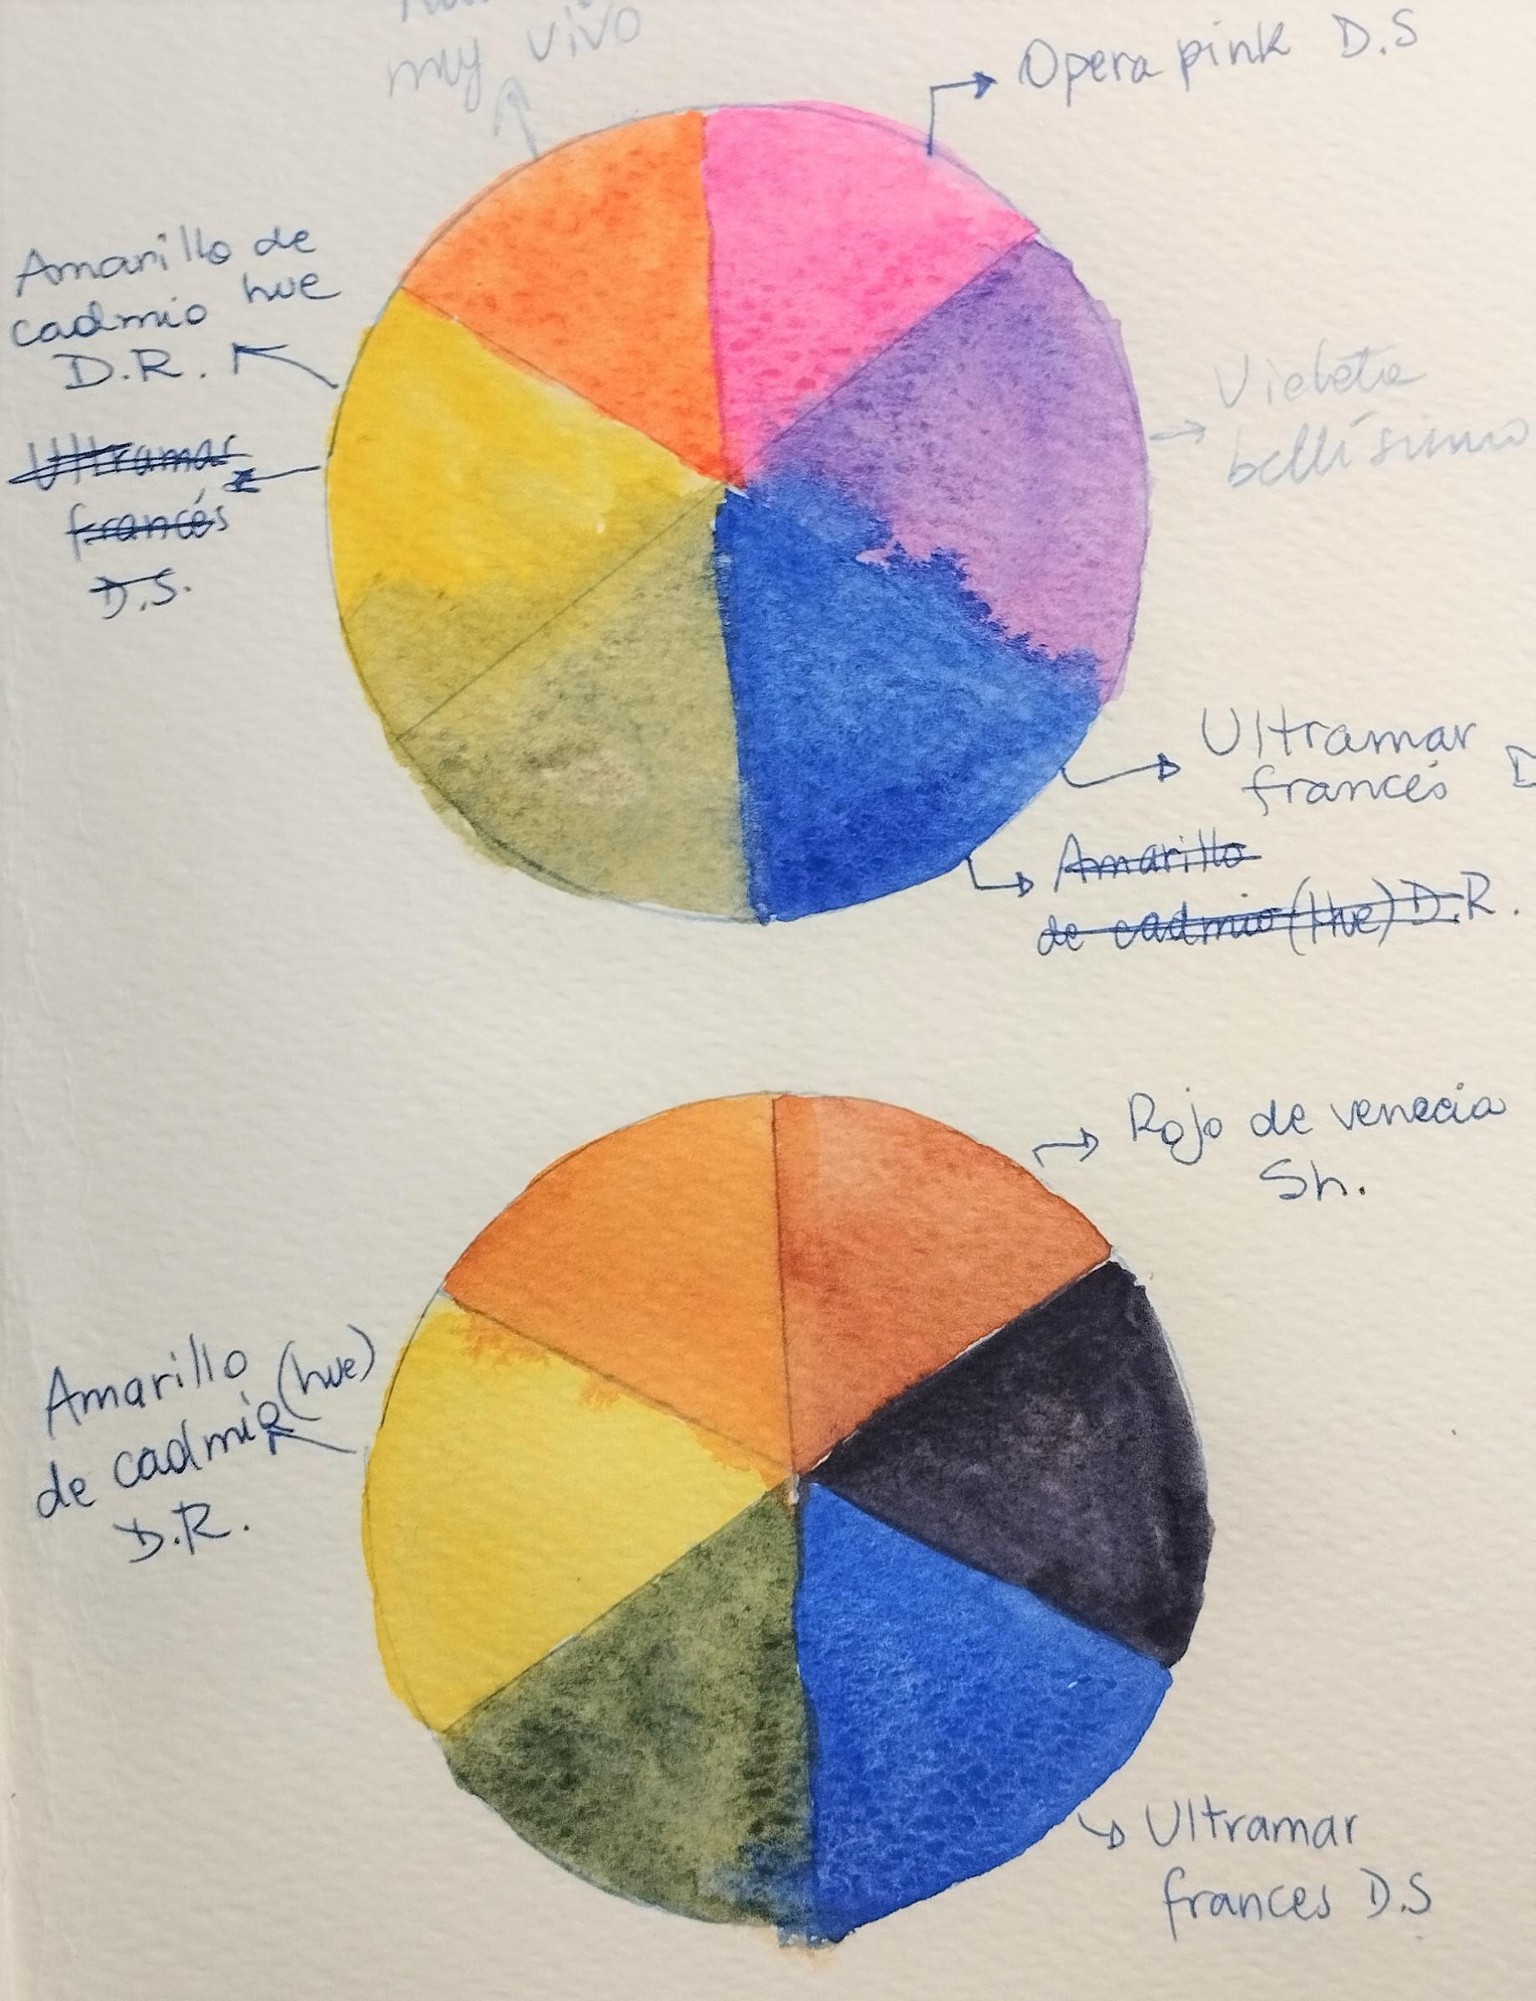 muy vivo
Opera pink D.S
Amarillo de
cadmio hue
D.R.
Ultramar
francés
D.S.
Violeta
bellísimo
Ultramar
francés D
Amarillo
de cadmio (Hue) D.R.
Rojo de venecia
Sh.
Amarillo
de cadmio (hue)
D.R.
Ultramar
frances D.S